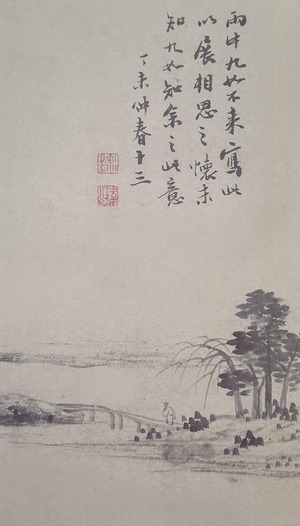 雨中九如不来寫此
以展相思之懷未
知九如知余之此意
丁未仲春十三